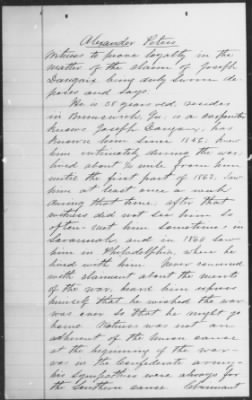 Alexander Peters
witness to prove loyalty in the
matter of the claim of Joseph
being duly sworn de-
poses and says:
He is 38 years old, resides
in Brunswick, Ga. is a carpenter
knows Joseph has
known him since 1846. Knew
him intimately during the war.
lived about ½ mile from him
until the first part of 1863. Saw
him at least once a week
during that time; after that
witness did not see him so
often. met him sometimes in
Savannah, and in 1864 saw
him in Philadelphia, where he
lived with him. Never conversed
with claimant about the merits
of the war, heard him express
himself that he wished the war
was over so that he might go
home. Witness was not an
adherent of the Union cause
at the beginning of the war -
was in the Confederate army -
his sympathies were always for
the Southern cause. Claimant